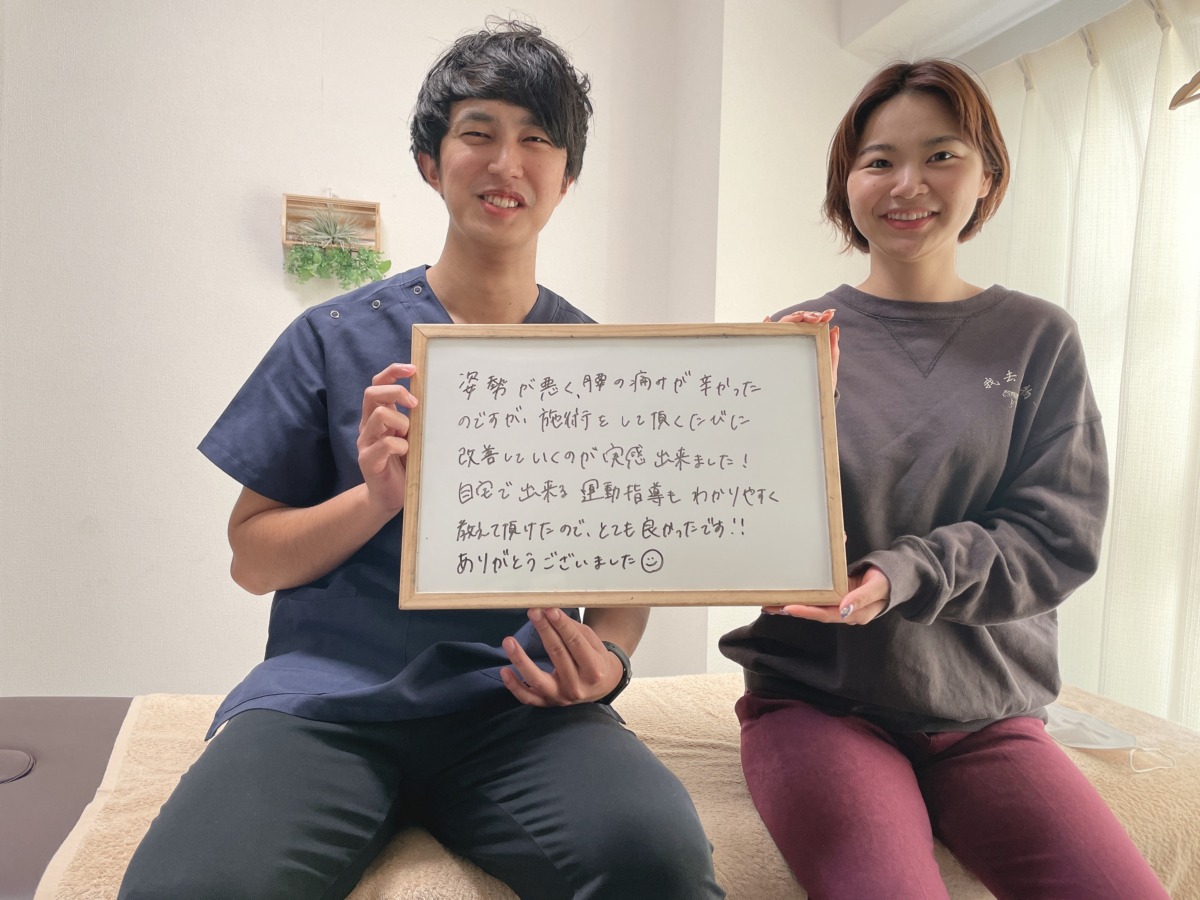 姿勢が悪く、腰の痛みが辛かった
のですが、施術をして頂くたびに
改善していくのが実感出来ました!
自宅で出来る運動指導もわかりやすく
教えて頂けたので、とても良かったです!!
ありがとうございました